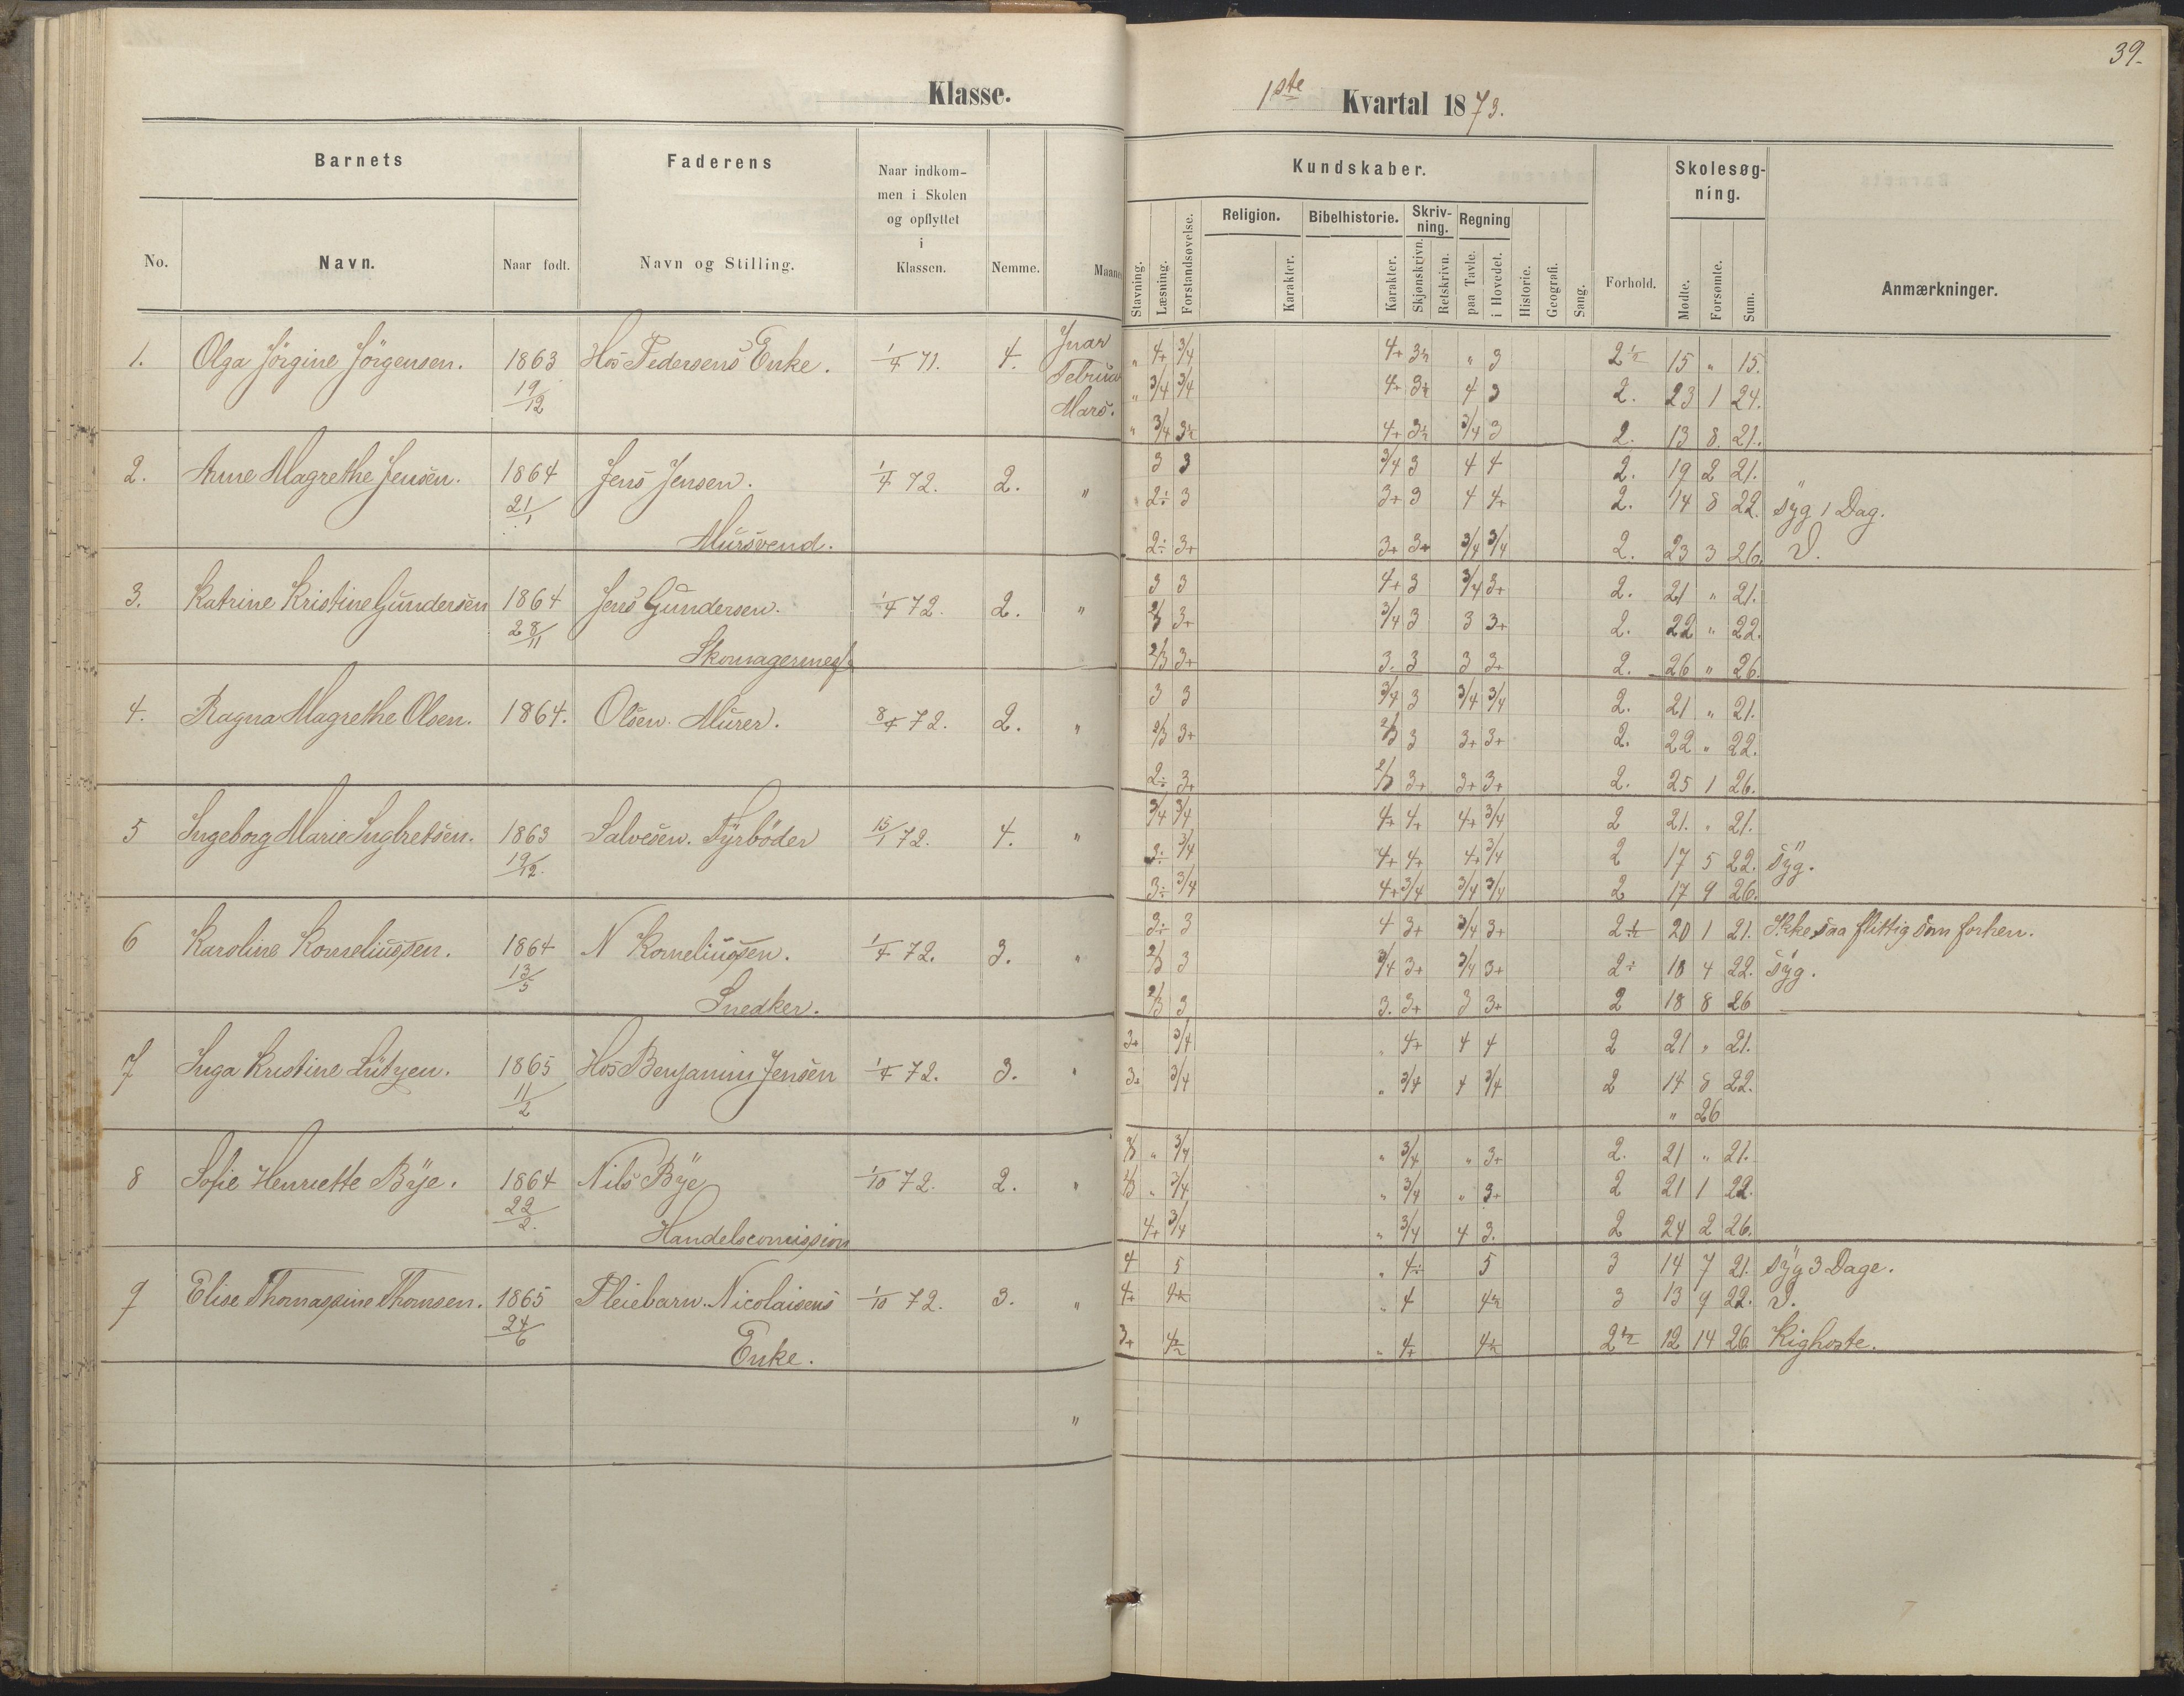 39.
Klasse.
1ste Kvartal 1873.
Barnets
Faderens
Naar indkom-
men i Skolen
og opflyttet
i
Klassen.
No.
Navn.
Naar født.
Navn og Stilling.
Nemme.
Maaned
Kundskaber.
Skolesøg-
ning.
Stavning.
Læsning.
Forstandsøvelse.
Religion.
Karakter.
Bibelhistorie.
Karakter.
Skriv-
ning.
Skjønskrivn.
Retskrivn.
Regning
paa Tavle.
i Hovedet.
Historie.
Geografi.
Sang.
Forhold.
Mødte.
Forsømte.
Sum.
Anmærkninger.
1. Olga Jörgine Jörgensen. 1863 Hos Pedersens Enke. 1/4 71. 4. Jnar " 4+ 3/4 4+ 3½ " 3 2½ 15 " 15.
19/12 Februar " 3/4 3/4 4+ 3½ 4 3 2. 23 1 24.
Mars. " 3/4 3½ 4+ 3½ 3/4 3 2. 13 8. 21.
2. Anne Magrethe Jensen. 1864 Jens Jensen. 1/4 72. 2. " 3 3 3/4 3 4 4 2. 19 2 21.
21/1 2÷ 3 3+ 3 4 4+ 2. 14 8 22. Syg 1 Dag.
Mursvend. 2÷ 3+ 3+ 3+ 3/4 3/4 2. 23 3 26.
3. Katrine Kristine Gundersen 1864 Jens Gundersen. 1/4 72. 2. " 3 3 4+ 3 3/4 3+ 2. 21 " 21.
28/11 2/3 3+ 3/4 3 3 3+ 2. 22 " 22.
Skomagermest. 2/3 3+ 3. 3 3 3+ 2. 26 " 26.
4. Ragna Magrethe Olsen. 1864. Olsen. Murer. 8/4 72. 2. " 3 3 3/4 3 3/4 3/4 2. 21 " 21.
2/3 3+ 2/3 3 3+ 3+ 2. 22 " 22.
2÷ 3+ 2/3 3+ 3+ 3+ 2. 25 1 26.
5 Ingeborg Marie Ingbretsen. 1863 Salvesen. Fyrböder 15/1 72. 4. " 3/4 3/4 4+ 4+ 4+ 3/4 2 21. " 21.
19/12. 3÷ 3/4 4+ 4+ 4+ 3/4 2 17 5 22. Syg.
3÷ 3/4 4+ 3/4 3/4 3/4 2 17 9 26.
6 Karoline Korneliussen. 1864 N Korneliussen. 1/4 72. 3. " 3÷ 3 4 3+ 3/4 3+ 2½ 20 1 21. Ikke saa flittig som forhen.
13/5 2/3 3 3/4 3+ 3/4 3+ 2÷ 18 4 22. Syg.
Snedker. 2/3 3 3. 3+ 3 3+ 2 18 8 26
7 Inga Kristine Lützen. 1865 Hos Benjamin Jensen 1/4 72. 3. " 3+ 3/4 " 4+ 4 4 2 21 " 21.
11/2 3+ 3/4 " 3/4 4 3/4 2 14 8 22.
" 26
8 Sofie Henriette Bye. 1864 Nils Bye 1/10 72. 2. " 2/3 " 3/4 " 3/4 " 3+ 2. 21 " 21.
22/2. 2/3 " 3/4 " 3/4 " 3+ 2 21 1 22.
Handelscomission 4+ 3/4 " 3/4 4 3. 2 24 2 26.
9 Elise Thomassine Thomsen. 1865 Pleiebarn. Nicolaisens 1/10 72. 3. " 4 5 " 4÷ 5 3 14 7 21. Syg 3 Dage.
24/6 4+ 4½ " 4 4½ 3 13 9 22.
Enke. 3+ 4½ " 4+ 4½ 2½ 12 14 26 Kighoste.
"